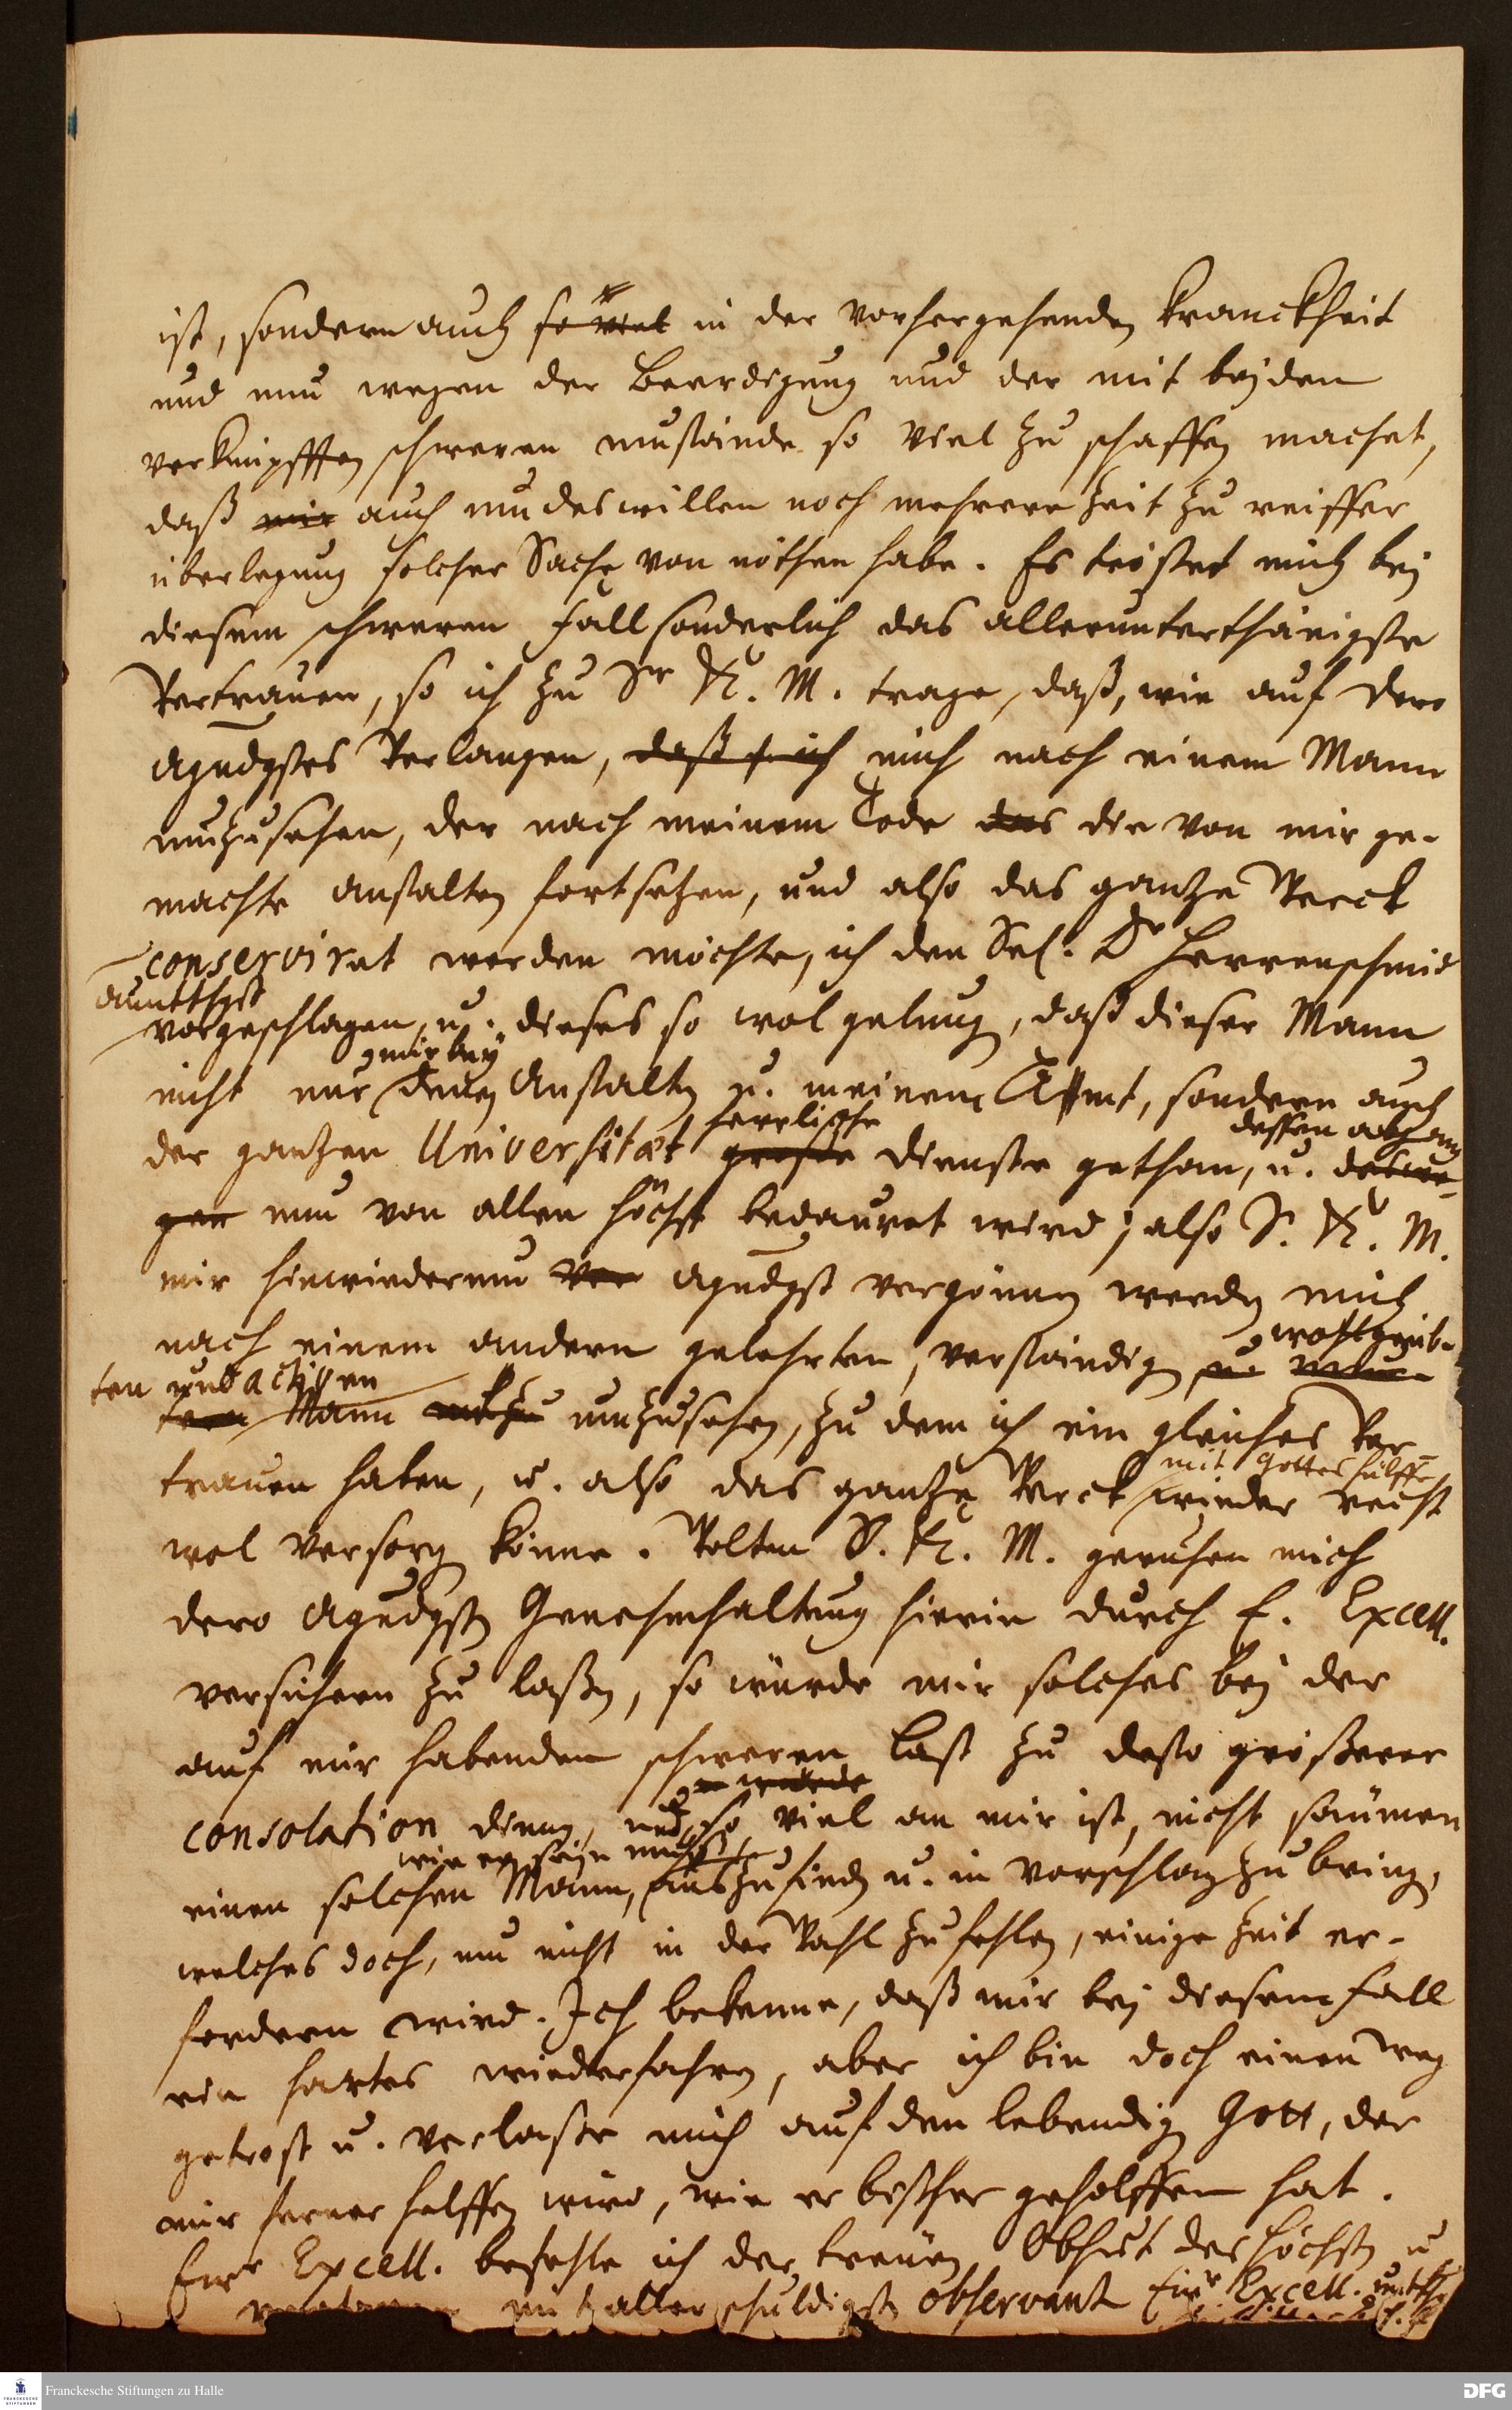 ist, sondern auch so viel in der vorhergehenden Kranckheit
und nun wegen der Beerdigung und der mit beyden
verknüpfften schweren umstände so viel zu schaffen machet,
daß mir auch um deswillen noch mehrere Zeit zu reiffer
überlegung solcher Sache von nöthen habe. Es tröstet mich bey
diesem schweren Fall sonderlich das allerunterthänigste
Vertrauen, so ich zu Sr K. M. trage, daß, wie auf dero
agndgstes Verlangen, daß ich mich nach einem Mann
umzusehen, der nach meinem Tode das die von mir ge-
machte Anstalten fortsetzen, und also das gantze Werck
conserviret werden möchte, ich den Sel. Dr Herrenschmid
auntthgst
vorgeschlagen, u. dieses so wol gelung, daß dieser Mann
mir bey
nicht nur denen Anstalten u. meinem Ampt, sondern auch
herrliche
dessen abgang
der gantzen Universitæt große Dienste gethan, u. deswe-
gen nun von allen höchst bedauret wird; also S. K. M.
mir hinwiederum ver agndgst vergönnen werden mich
nach einem andern gelehrten, verständigen u.
wohlgeüb-
ten und actigen
Mann umzusehen, zu dem ich ein gleiches Ver-
mit Gottes hülffe
trauen haben, u. also das gantze Werck wieder recht
wol versorg könne. Wolten S. K. M. geruhen mich
dero agndgst Genehmhaltung hierin durch E. Excell.
versichern zu laßen, so würde mir solches bey der
auf mir habenden schweren Last zu desto größerer
würde
consolation dienen, und so viel an mir ist, nicht säumen
wie er seyn müste
einen solchen Mann, auszufinden u. in Vorschlag zu bring,
welches doch, um nicht in der Wahl zu fehlen, einige Zeit er-
fordern wird. Ich bekenne, daß mir bey diesem Fall
ein hartes wiederfahren, aber ich bin doch einen weg
getrost u. verlasse mich auf den lebendig Gott, der
mir ferner helffen wird, wie er bißher geholffen hat.
Ewr Excell. befehle ich der treüen Obhut des Höchsten u
mit aller schuldigst observantz Eur Excell.
Franckesche Stiftungen zu Halle
DFG